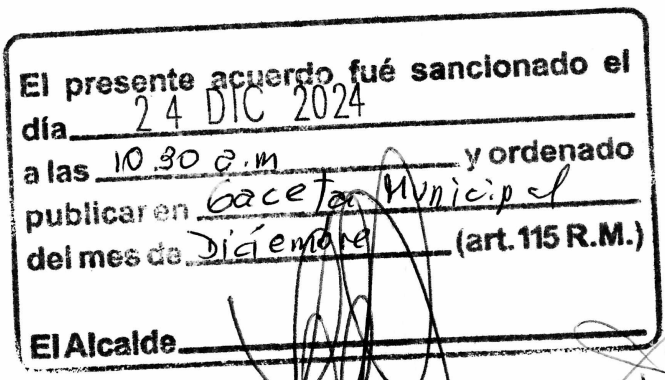 El presente acuerdo fué sancionado el
día 24 DIC 2024
a las 10 30 a.m y ordenado
publicar en Gaceta Municipal
del mes de Diciembre (art.115 R.M.)
El Alcalde